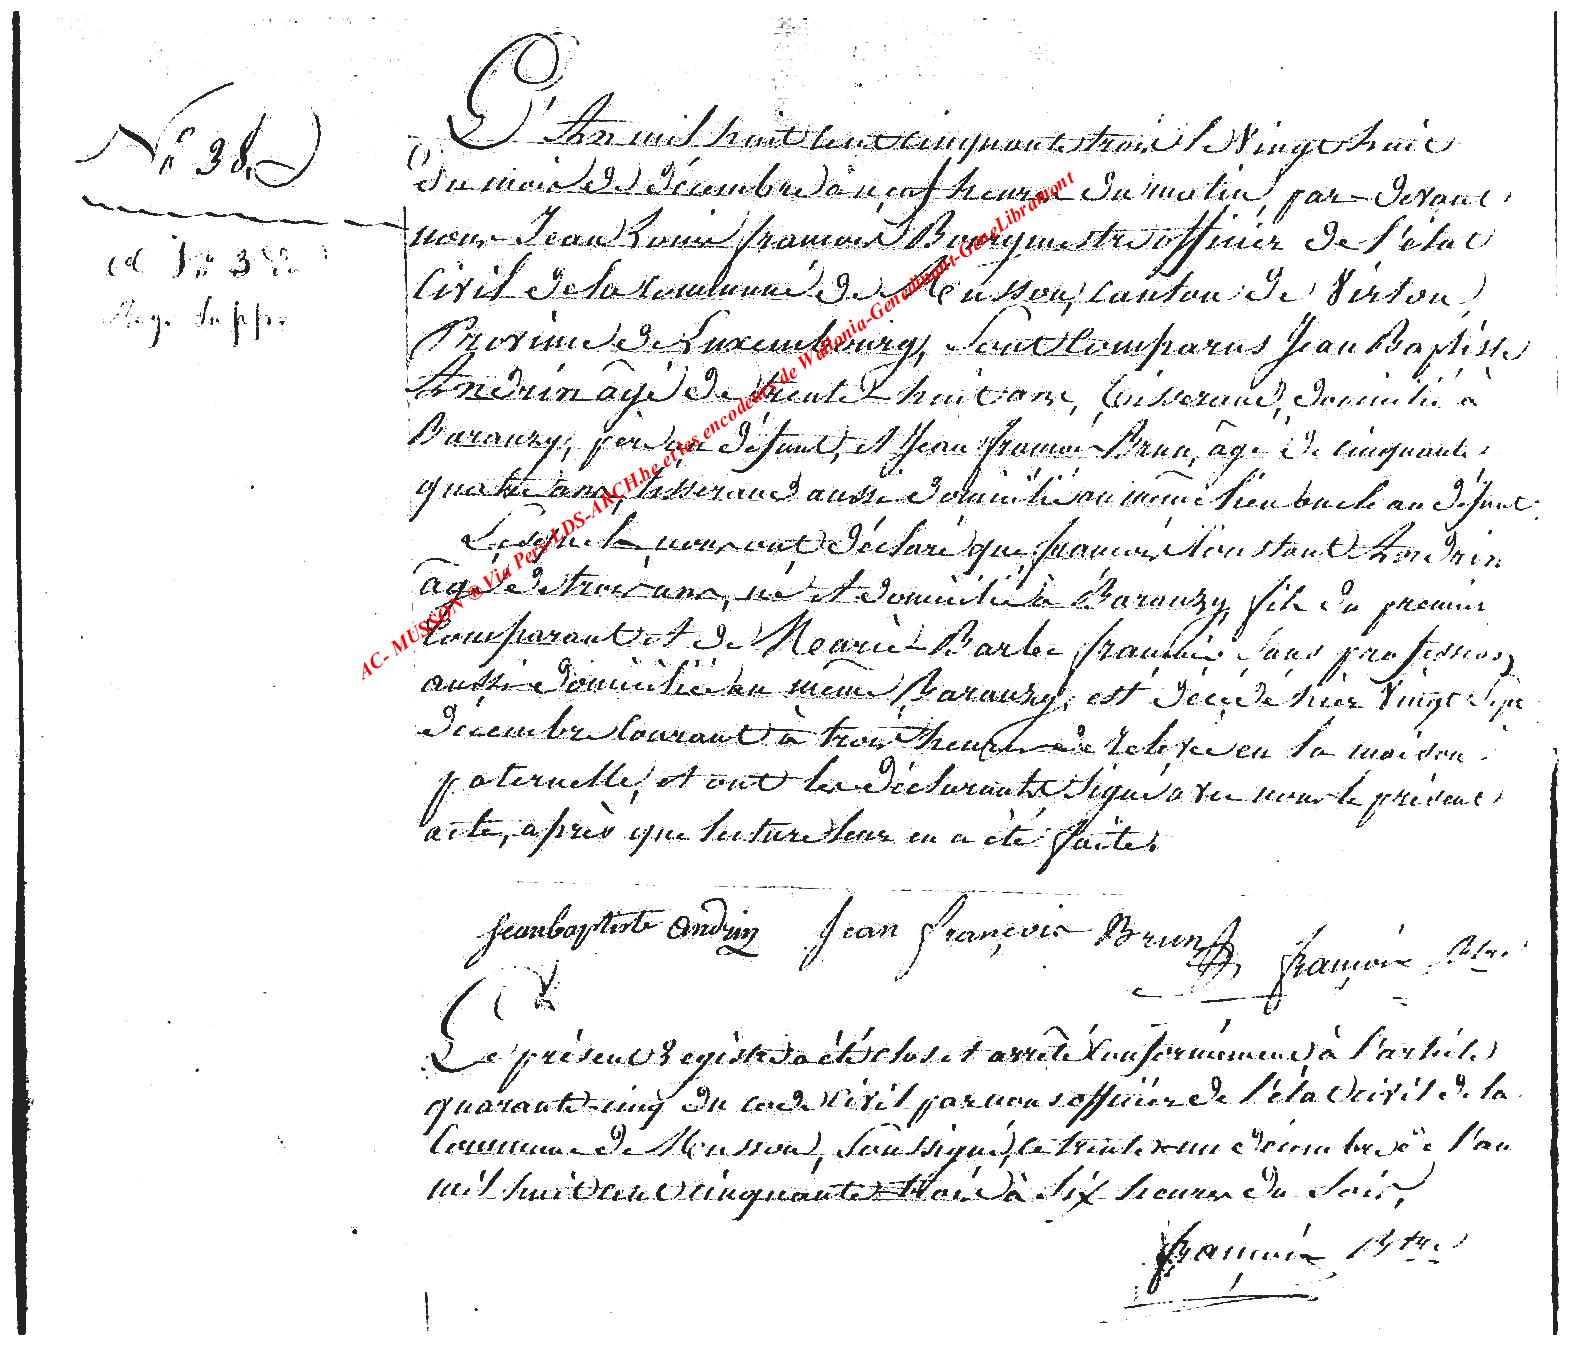 N° 38.
L'An mil huit cent cinquante trois le Vingt huit
du mois de décembre à neuf heures du matin, par-devant
nous Jean Louis françois Bourgmestre officier de l'état
Civil de la Commune de Musson, Canton de Virton,
Province de Luxembourg, Sont Comparus Jean Baptiste
Andrin âgé de trente huit ans, tisserand, domicilié à
Baranzy, père du défunt, et Jean françois Brun, âgé de cinquante
quatre ans, tisserand aussi domicilié au même lieu oncle au défunt
Lesquels nous ont déclaré que françois Constant Andrin
âgé de trois ans, né et domicilié à Baranzy, fils du premier
Comparant et de Marie Barbe françois sans profession,
aussi domiciliée au même Baranzy, est décédé hier Vingt Sept
décembre Courant à trois heures de relevée en la maison
paternelle, et ont les déclarants Signé avec nous le présent
acte, après que lecture leur en a été faite.
Jeanbaptiste andrin Jean François Brun françois Btre
Le présent Registre a été clos et arrêté Conformément à l'article
quarante-cinq du code Civil par nous officier de l'état civil de la
Commune de Musson, Soussigné, le trente-un décembre de l'an
mil huit cent cinquante trois à Six heures du Soir.
françois Btre
AC- MUSSON ® Via Perv LDS-ARCH.be et les encodeurs de Wallonia-Genealinant-GeneLibramont